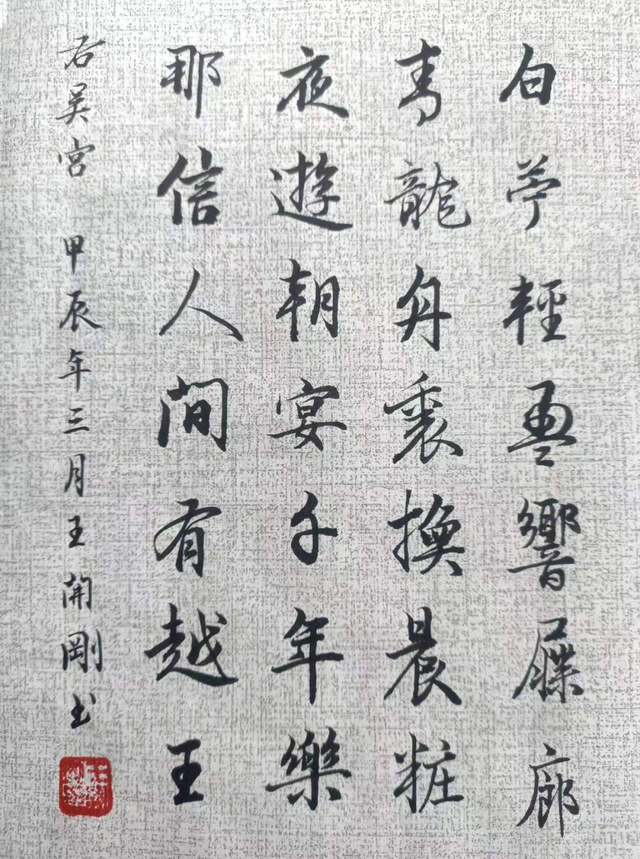 白苧輕盈響屧廊
青龍舟裏換晨粧
夜遊朝宴千年樂
那信人間有越王
右吴宮 甲辰年三月王開剛书